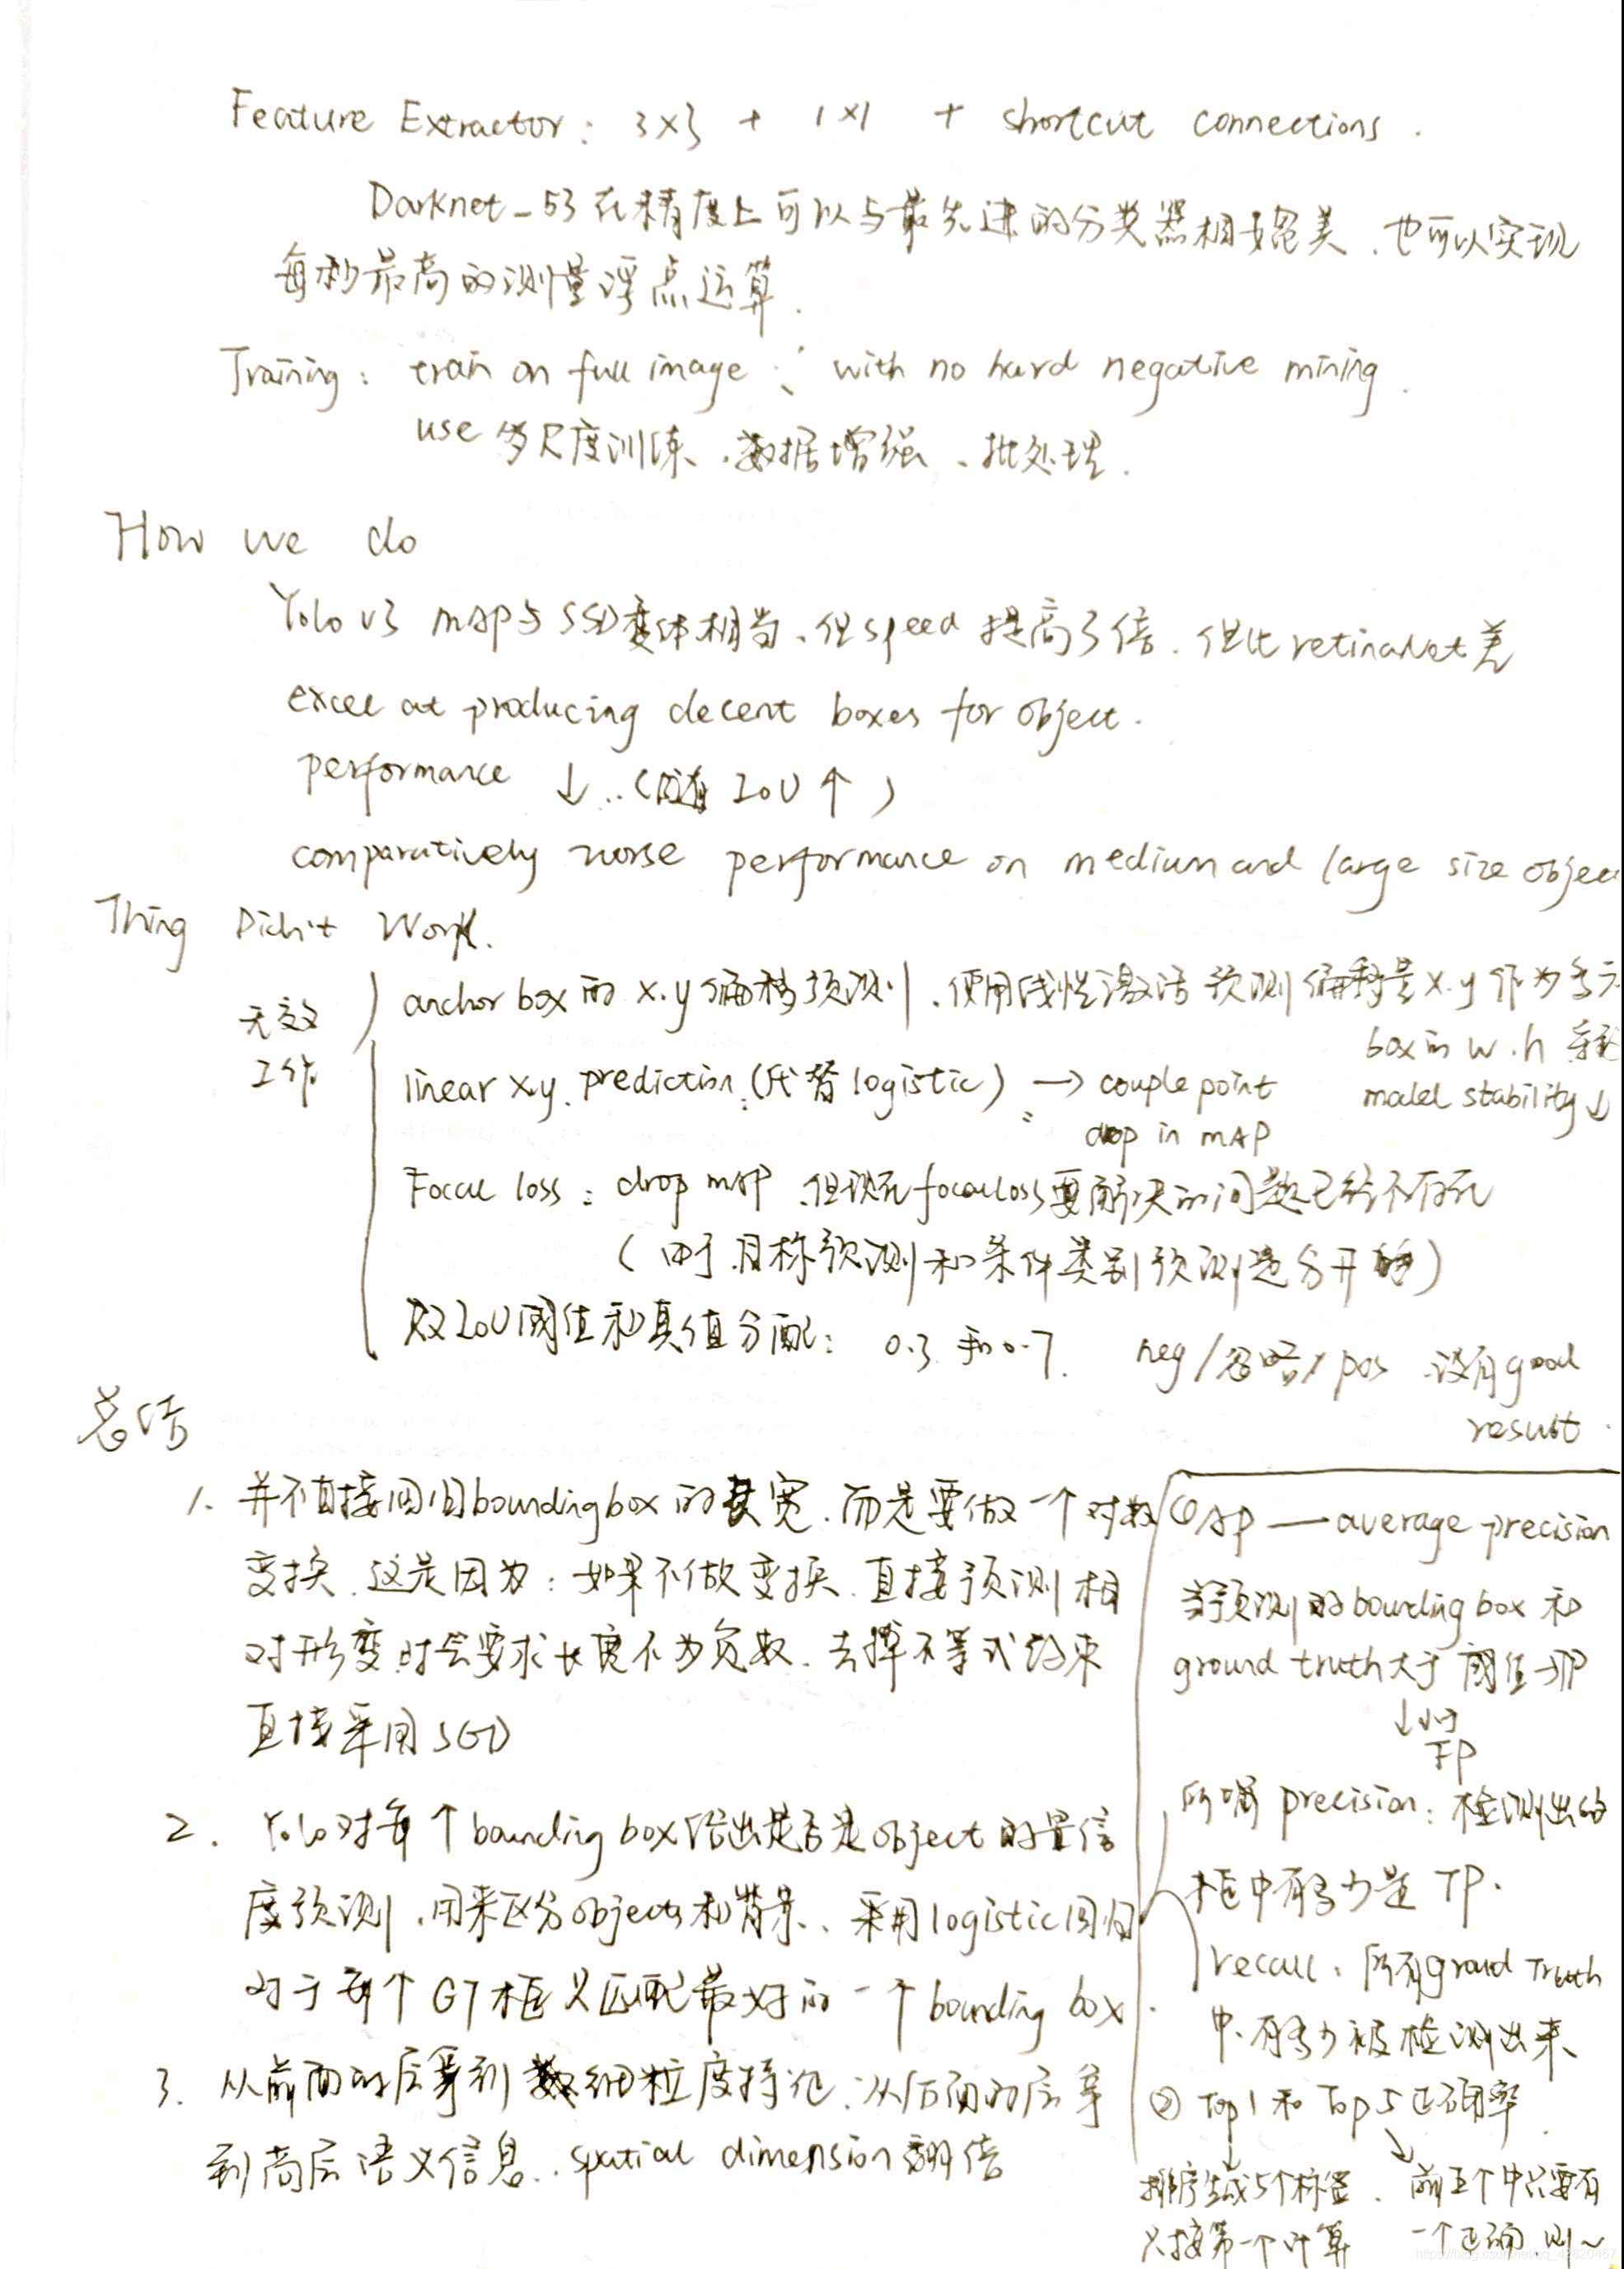 Feature Extractor: 3×3 + 1×1 + shortcut connections.
Darknet-53在精度上可以与最先进的分类器相媲美、也可以实现
每秒最高的测量浮点运算.
Training: train on full image、with no hard negative mining.
use 多尺度训练、数据增强、批处理.
How we do
Yolo v3 mAP与SSD变体相当、但speed提高3倍. 但比retinaNet差
excel at producing decent boxes for object.
performance ↓..(随着 IoU ↑)
comparatively worse performance on medium and large size objec
Thing Didn't Work.
无效
工作
anchor box的 x.y偏移预测、使用线性激活预测偏移量x.y作为多元
box的w.h
model stability↓
linear x.y. prediction:(代替logistic) → couple point
drop in mAP
Focal loss: drop mAP、但现在focal loss要解决的问题已经不存在
(由于目标预测和条件类别预测是分开的)
双IoU阈值和真值分配: 0.3 和0.7. neg/忽略/pos 没有good
result.
总结
1. 并不直接回归bounding box的长宽.而是要做一个对数
变换.这是因为:如果不做变换.直接预测相
对形变时会要求长宽不为负数.去掉不等式约束
直接采用SGD
2. Yolo对每个bounding box给出是否是object的置信
度预测.用来区分objects和背景、采用logistic回归
对于每个GT框只匹配最好的一个bounding box.
3. 从前面的层拿到细粒度特征.从后面的层拿
到高层语义信息..spatial dimension翻倍
①AP — average precision
当预测的bounding box和
ground truth大于阈值→TP
↓小于
FP
所谓 precision:检测出的
框中有多少是 TP.
recall:所有groud Truth
中.有多少被检测出来
② Top 1 和 Top 5 正确率
排序生成5个标签. 前五个中只要有
只按第一个计算 一个正确 则~